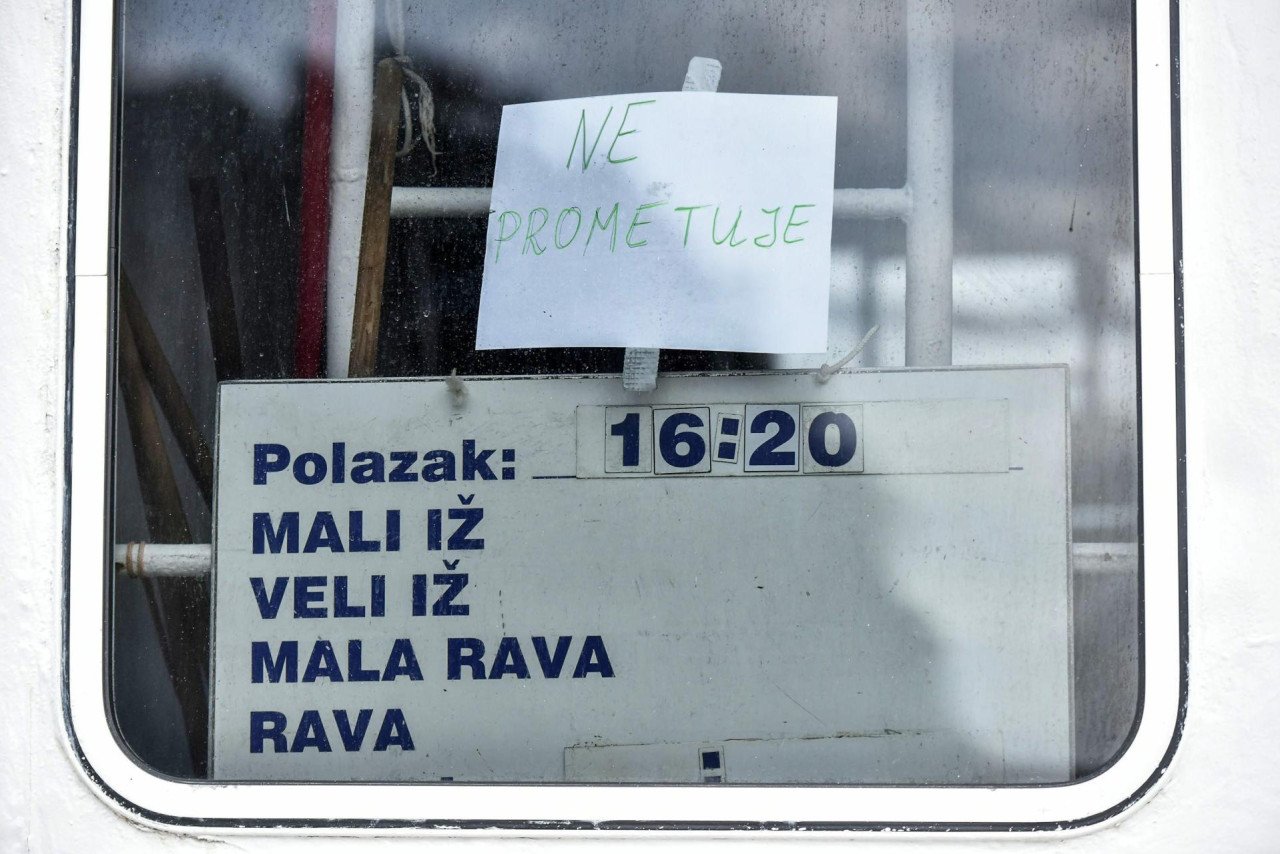 NE
PROMETUJE
Polazak: 16:20
MALI IŽ
VELI IŽ
MALA RAVA
RAVA